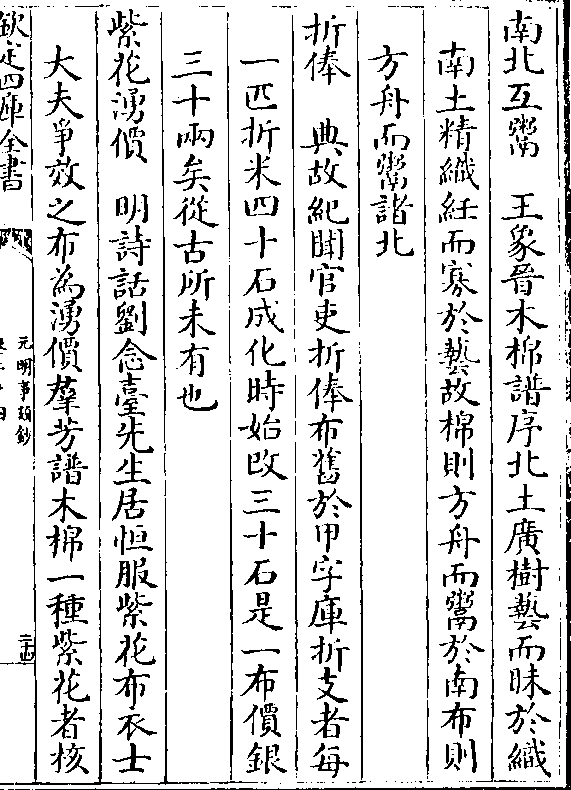 南北互鬻　王象晉木棉譜序北土廣樹藝而昧於織
南土精織紝而寡於藝故棉則方舟而鬻於南布則
方舟而鬻諸北
折俸　典故紀聞官吏折俸布舊於甲字庫折支者每
一匹折米四十石成化時始改三十石是一布價銀
三十兩矣從古所未有也
紫花湧價　明詩話劉念臺先生居恒服紫花布衣士
大夫爭效之布為湧價羣芳譜木棉一種紫花者核
欽定四庫全書
元明事類鈔